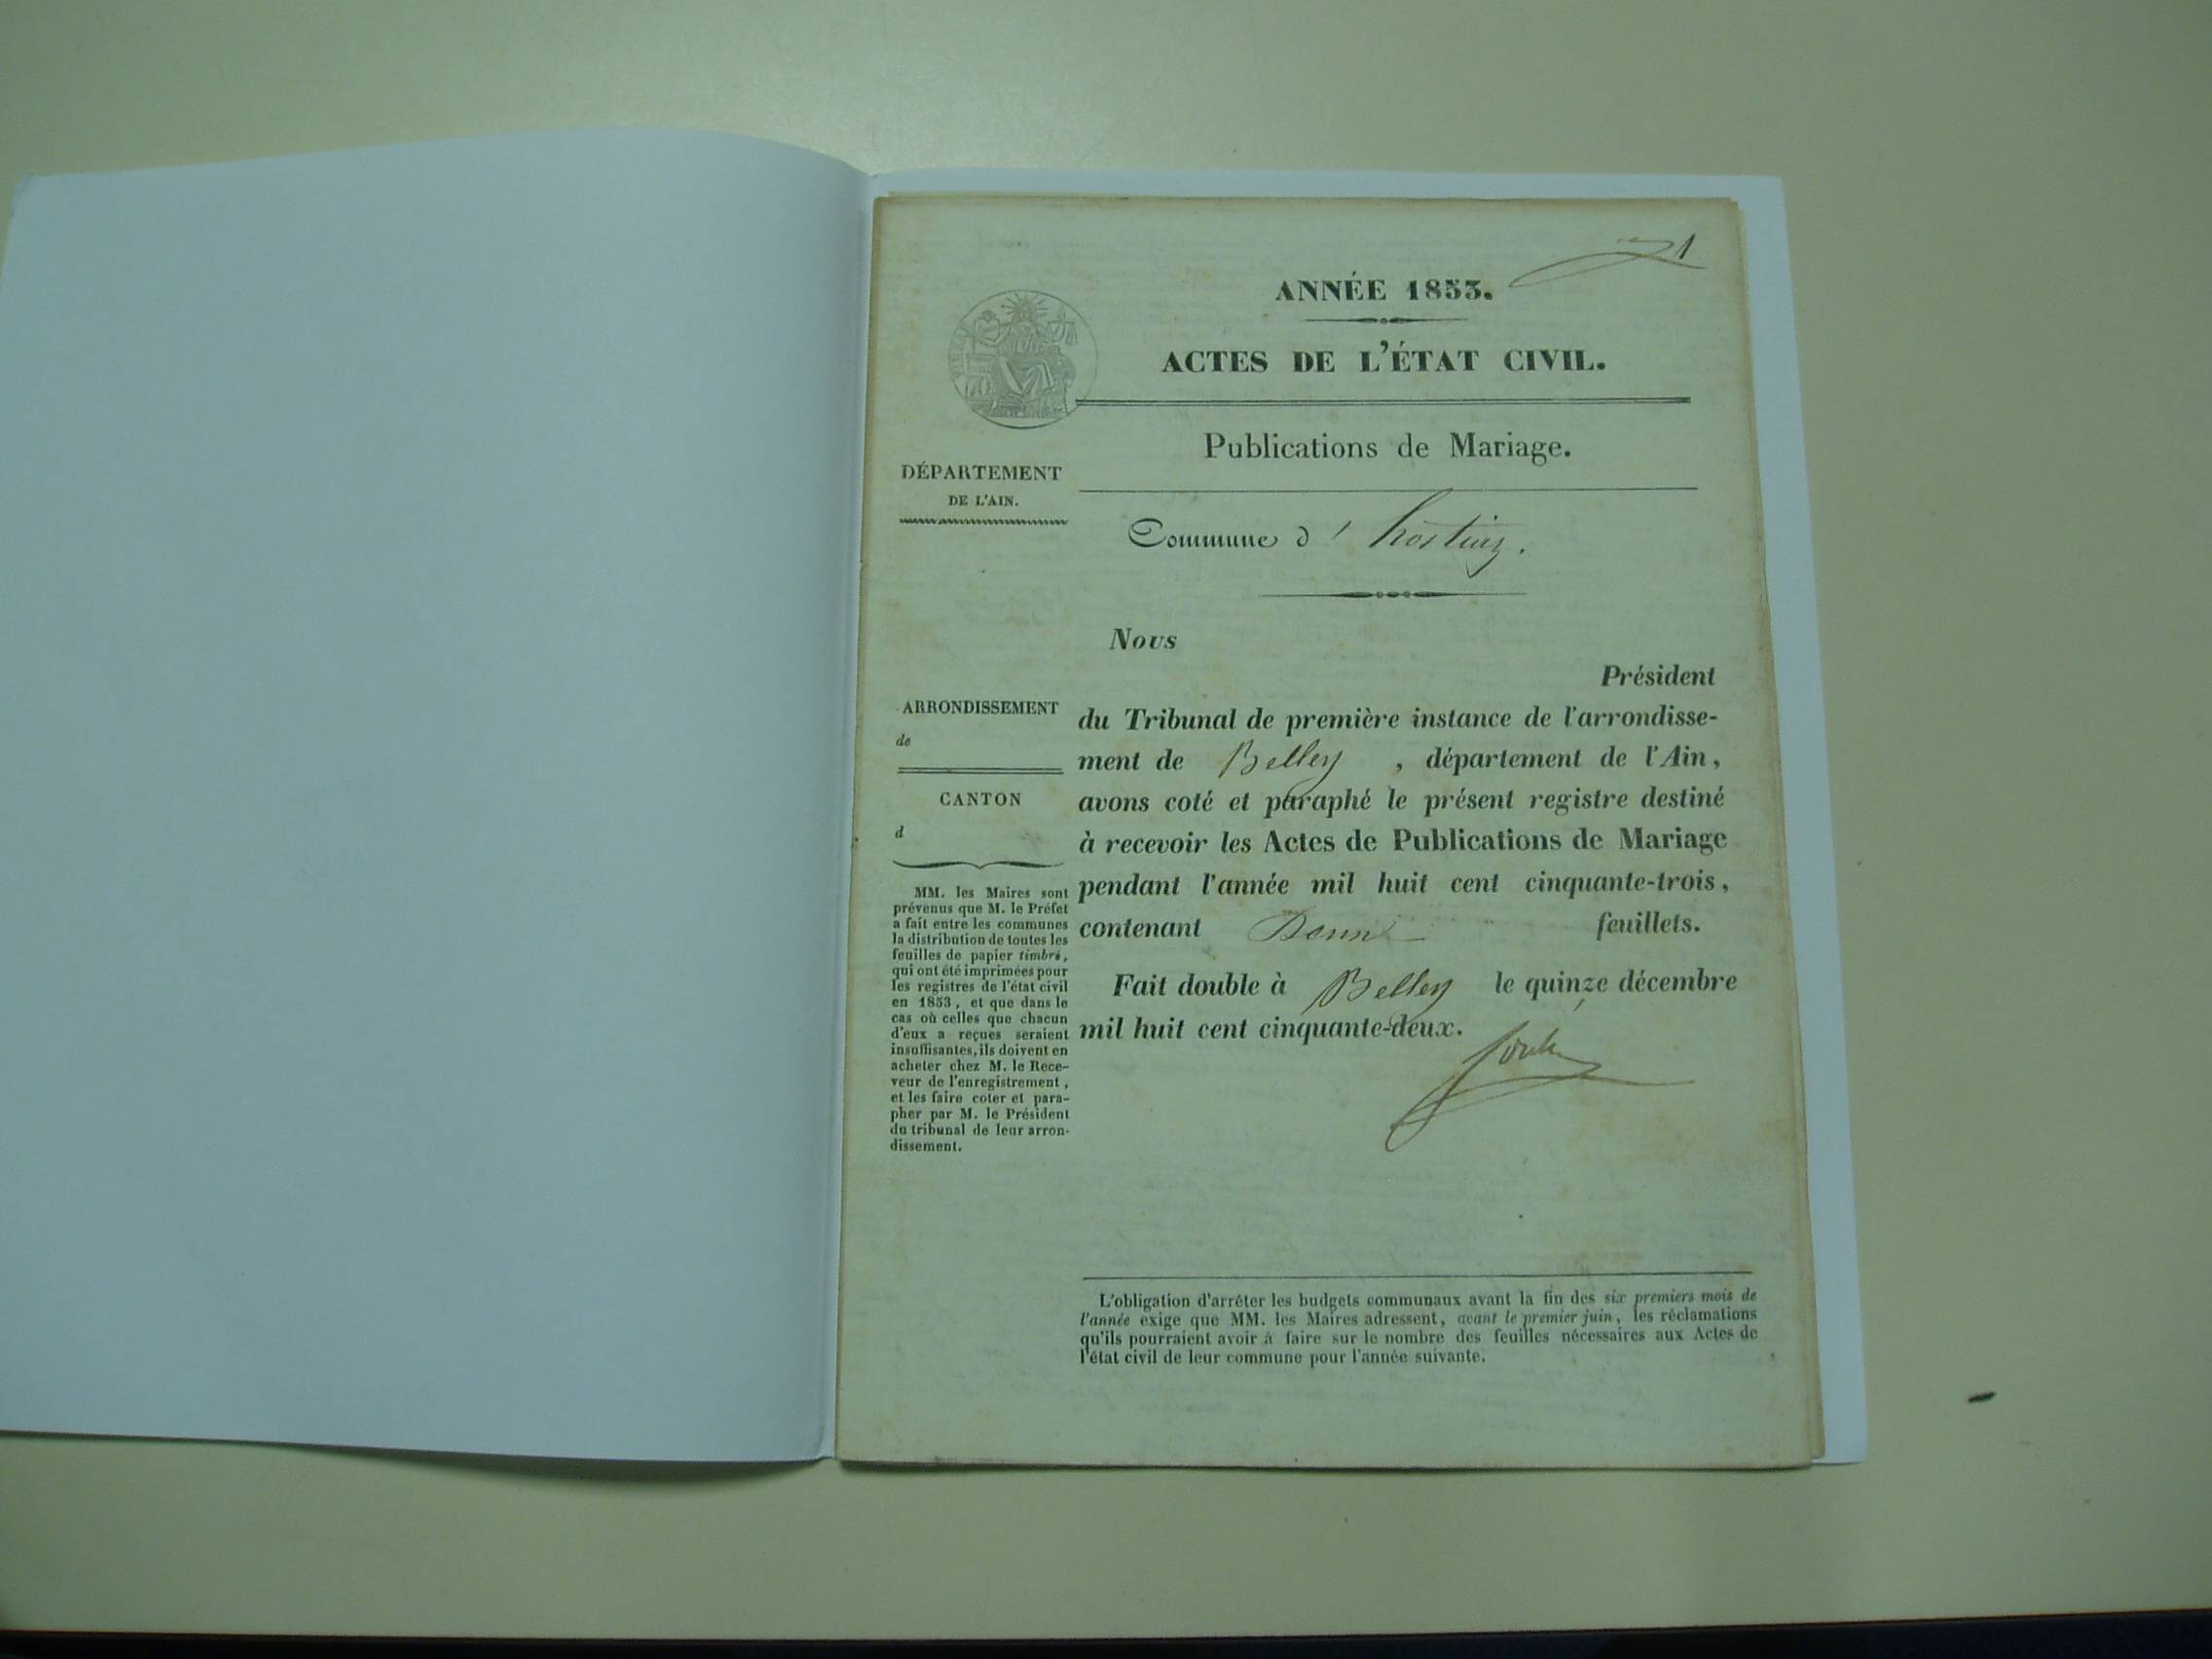 1
ANNÉE 1853.
ACTES DE L'ÉTAT CIVIL.
Publications de Mariage.
DÉPARTEMENT
DE L'AIN.
Commune d' hostiaz.
Nous
Président
ARRONDISSEMENT
de
CANTON
d
du Tribunal de première instance de l'arrondisse-
ment de Belley, département de l'Ain,
avons coté et paraphé le présent registre destiné
à recevoir les Actes de Publications de Mariage
pendant l'année mil huit cent cinquante-trois,
contenant feuillets.
Fait double à Belley le quinze décembre
mil huit cent cinquante-deux.
MM. les Maires sont
prévenus que M. le Préfet
a fait entre les communes
la distribution de toutes les
feuilles de papier timbré,
qui ont été imprimées pour
les registres de l'état civil
en 1853, et que dans le
cas où celles que chacun
d'eux a reçues seraient
insuffisantes, ils doivent en
acheter chez M. le Rece-
veur de l'enregistrement,
et les faire coter et para-
pher par M. le Président
du tribunal de leur arron-
dissement.
L'obligation d'arrêter les budgets communaux avant la fin des six premiers mois de
l'année exige que MM. les Maires adressent, avant le premier juin, les réclamations
qu'ils pourraient avoir à faire sur le nombre des feuilles nécessaires aux Actes de
l'état civil de leur commune pour l'année suivante.